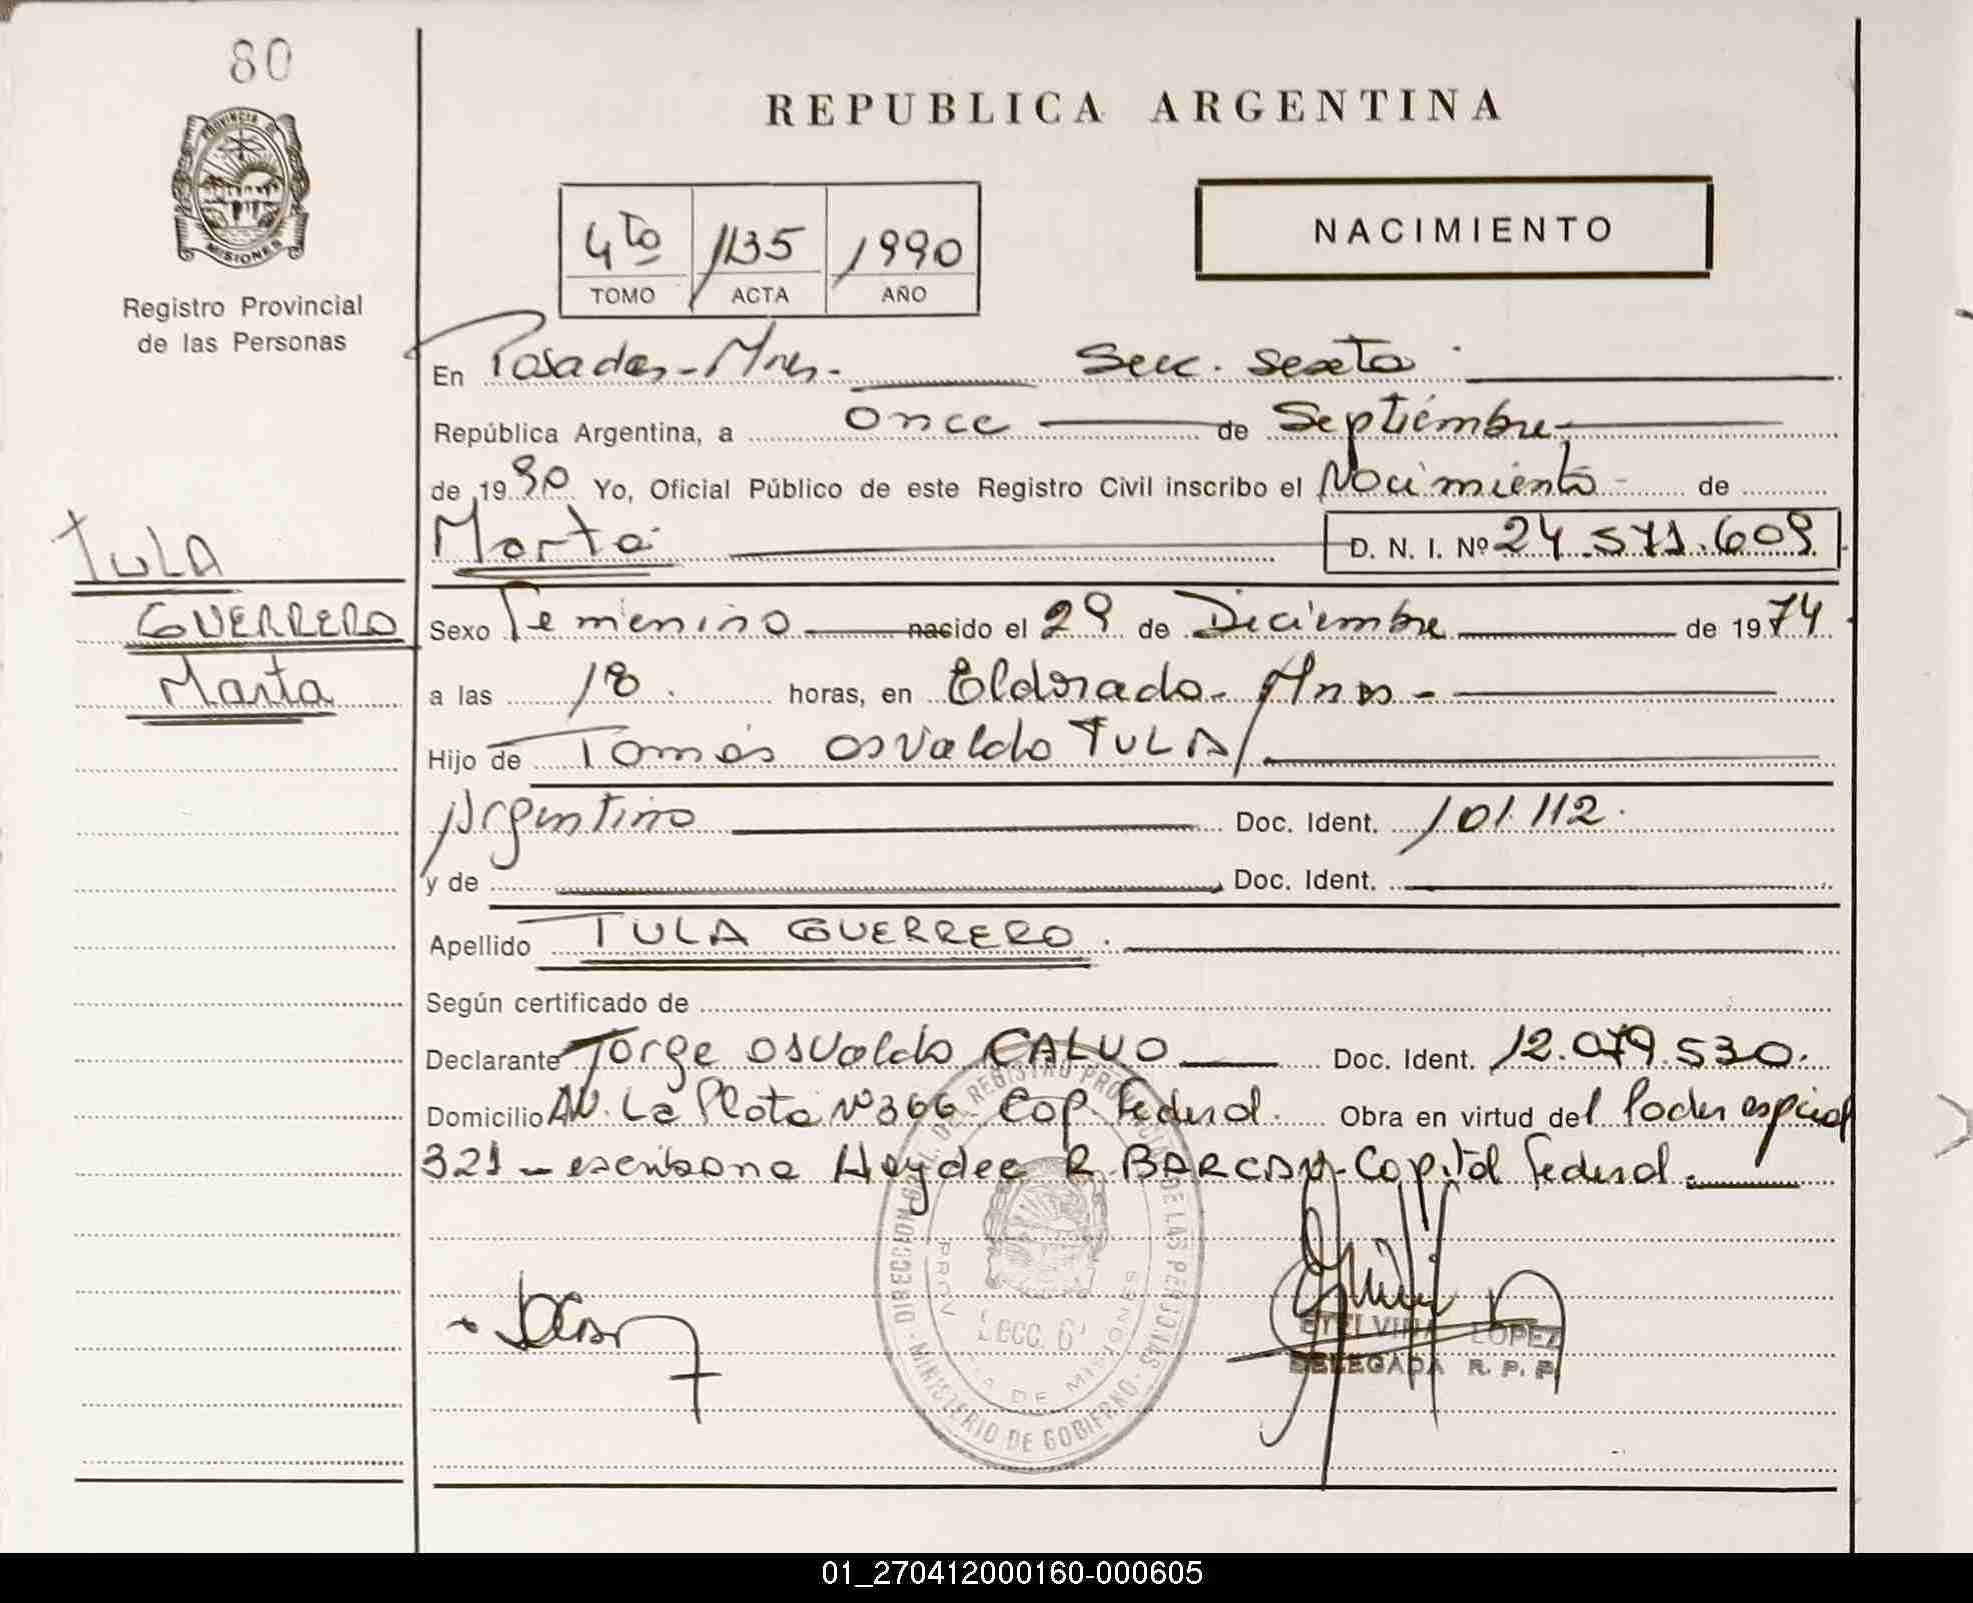 80
REPUBLICA ARGENTINA
PROVINCIA DE
MISIONES
Registro Provincial
de las Personas
4to 1135 1990
TOMO ACTA AÑO
NACIMIENTO
En Posadas-Mnes- Secc. sexta
República Argentina, a once de Septiembre
de 1990 Yo, Oficial Público de este Registro Civil inscribo el Nacimiento de
Marta D. N. I. Nº 24.571.609
TULA
GUERRERO
Marta
Sexo Femenino nacido el 29 de Diciembre de 1974
a las 18. horas, en Eldorado- Mnes-
Hijo de Tomás Osvaldo TULA
Argentino Doc. Ident. 101.112.
y de Doc. Ident.
Apellido TULA GUERRERO.
Según certificado de
Declarante Jorge Osvaldo CALVO Doc. Ident. 12.079.530.
Domicilio AV. La Plata Nº 366 Cap. Federal. Obra en virtud del Poder especial
321 - escribana Haydee R. BARCAN-Capital Federal.
DIRECCION GRAL. DE REGISTRO PROVINCIAL DE LAS PERSONAS - MINISTERIO DE GOBIERNO -
PROVINCIA DE MISIONES
Secc. 6
ETELVINA LOPEZ
DELEGADA R. P. P.
01_270412000160-000605